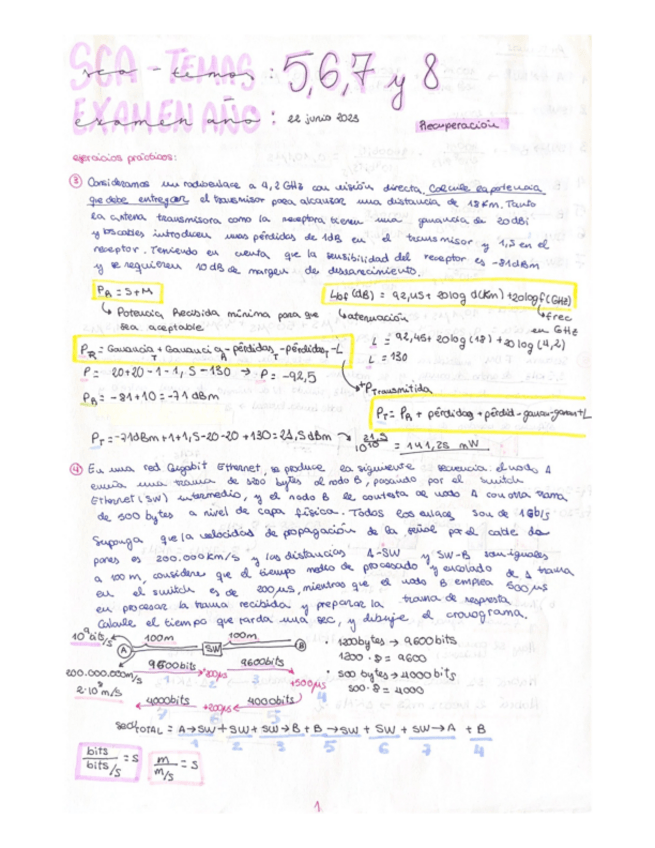 SCA - TEMAS
sca - temas : 5,6,7 y 8
EXAMEN AÑO
examen año : 22 junio 2023
Recuperación
ejercicios prácticos:
③ Consideramos un radioenlace a 4,2 GHz con visión directa. Calcule la potencia
que debe entregar el transmisor para alcanzar una distancia de 18 Km. Tanto
la antena transmisora como la receptora tienen una ganancia de 20 dBi
y los cables introducen unas pérdidas de 1dB en el transmisor y 1,5 en el
receptor. Teniendo en cuenta que la sensibilidad del receptor es -81dBm
y se requieren 10 dB de margen de desvanecimiento.
PR = S+M
Lbf (dB) = 92,45 + 20log d(Km) +20logf(GHz)
↳ Potencia Recibida mínima para que
sea aceptable.
↳ atenuación
↳ frec
en GHz
PR = Ganancia T + Ganancia A - pérdidas T - pérdidas T - L
L = 92,45 + 20log (18) + 20 log (4,2)
L = 130
P = 20+20-1-1,5-130 → P = -92,5
+PTransmitida
PR = -81+10 = -71 dBm
PT = PR + pérdidas + pérdid - ganan - ganan + L
PT = -71dBm +1+1,5-20-20 +130 = 21,5 dBm → 10 21,5/10 = 141,25 mW
④ En una red Gigabit Ethernet, se produce la siguiente secuencia: el nodo A
envía una trama de 1200 bytes al nodo B, pasando por el switch
Ethernet (SW) intermedio, y el nodo B le contesta al nodo A con otra trama
de 500 bytes a nivel de capa física. Todos los enlaces son de 1Gb/s
Suponga que la velocidad de propagación de la señal por el cable de
pares es 200.000 Km/s y las distancias A-SW y SW-B son iguales
a 100 m, considere que el tiempo medio de procesado y encolado de la trama
en el switch es de 200 μs, mientras que el nodo B emplea 500 μs
en procesar la trama recibida y preparar la trama de respuesta.
Calcule el tiempo que tarda una sec, y dibuje el cronograma.
10⁹ bits/s
A 100m SW 100m B
• 1200bytes → 9600bits
1200 · 8 = 9600
9600bits +200μs 9600bits
200.000.000m/s
1 2 3
+500μs
• 500 bytes → 4000 bits
500 · 8 = 4000
2·10⁸ m/s
4
4000bits +200μs 4000bits
7 6 5
secTOTAL = A→SW + SW + SW→B + B→SW + SW + SW→A + B
1 2 3 5 6 7 4
bits / bits/s = s
m / m/s = s
1